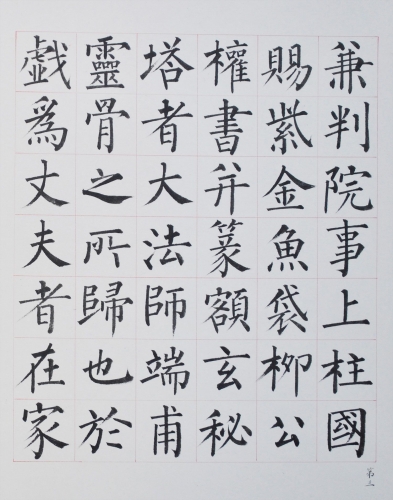 兼判院事上柱國
賜紫金魚袋柳公
權書并篆額玄秘
塔者大法師端甫
靈骨之所歸也於
戯爲丈夫者在家
第三